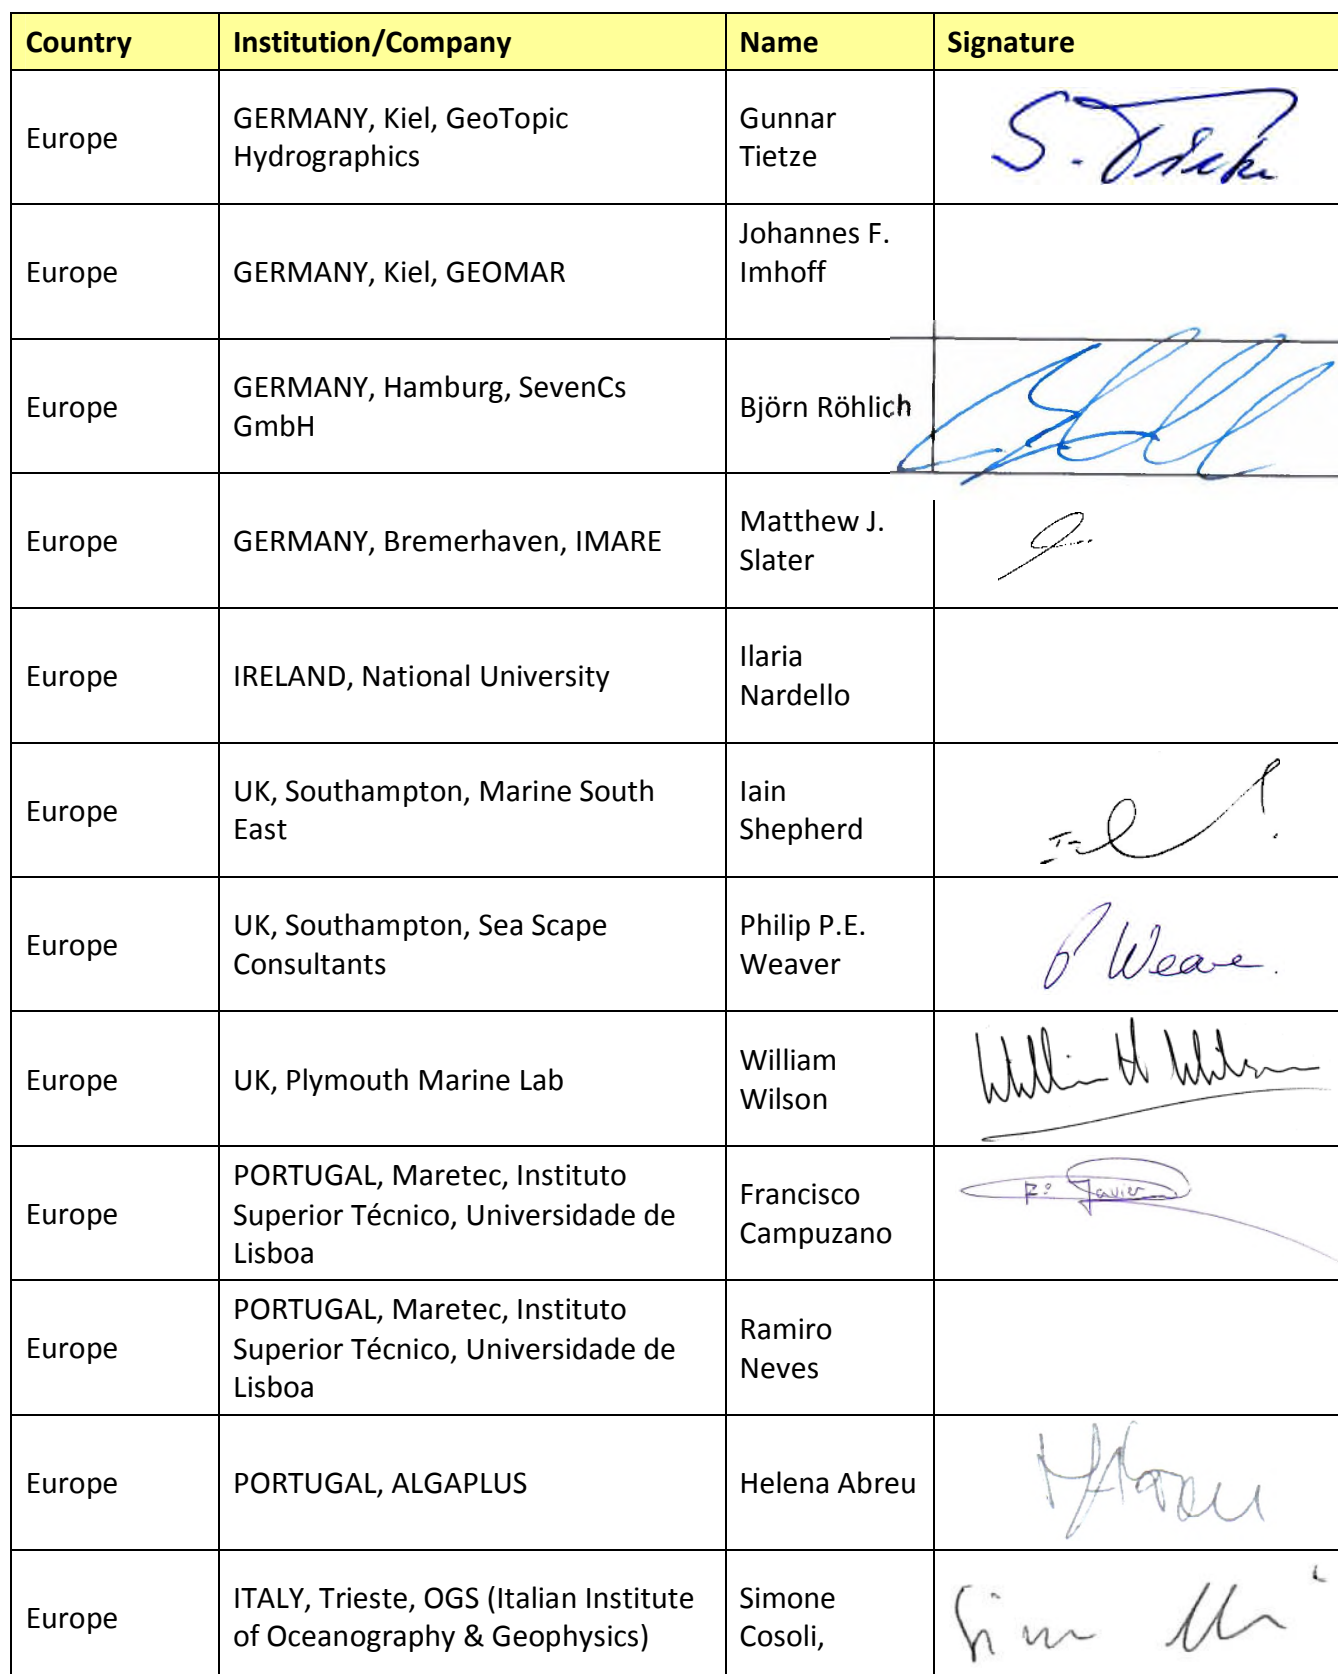 Country Institution/Company Name Signature
Europe
GERMANY, Kiel, GeoTopic
Hydrographics
Gunnar
Tietze
Europe
GERMANY, Kiel, GEOMAR
Johannes F.
Imhoff
Europe
GERMANY, Hamburg, SevenCs
GmbH
Björn Röhlich
Europe
GERMANY, Bremerhaven, IMARE
Matthew J.
Slater
Europe
IRELAND, National University
Ilaria
Nardello
Europe
UK, Southampton, Marine South
East
Iain
Shepherd
Europe
UK, Southampton, Sea Scape
Consultants
Philip P.E.
Weaver
P Weaver
Europe
UK, Plymouth Marine Lab
William
Wilson
William H Wilson
Europe
PORTUGAL, Maretec, Instituto
Superior Técnico, Universidade de
Lisboa
Francisco
Campuzano
Fº Javier
Europe
PORTUGAL, Maretec, Instituto
Superior Técnico, Universidade de
Lisboa
Ramiro
Neves
Europe
PORTUGAL, ALGAPLUS
Helena Abreu
HAbreu
Europe
ITALY, Trieste, OGS (Italian Institute
of Oceanography & Geophysics)
Simone
Cosoli,